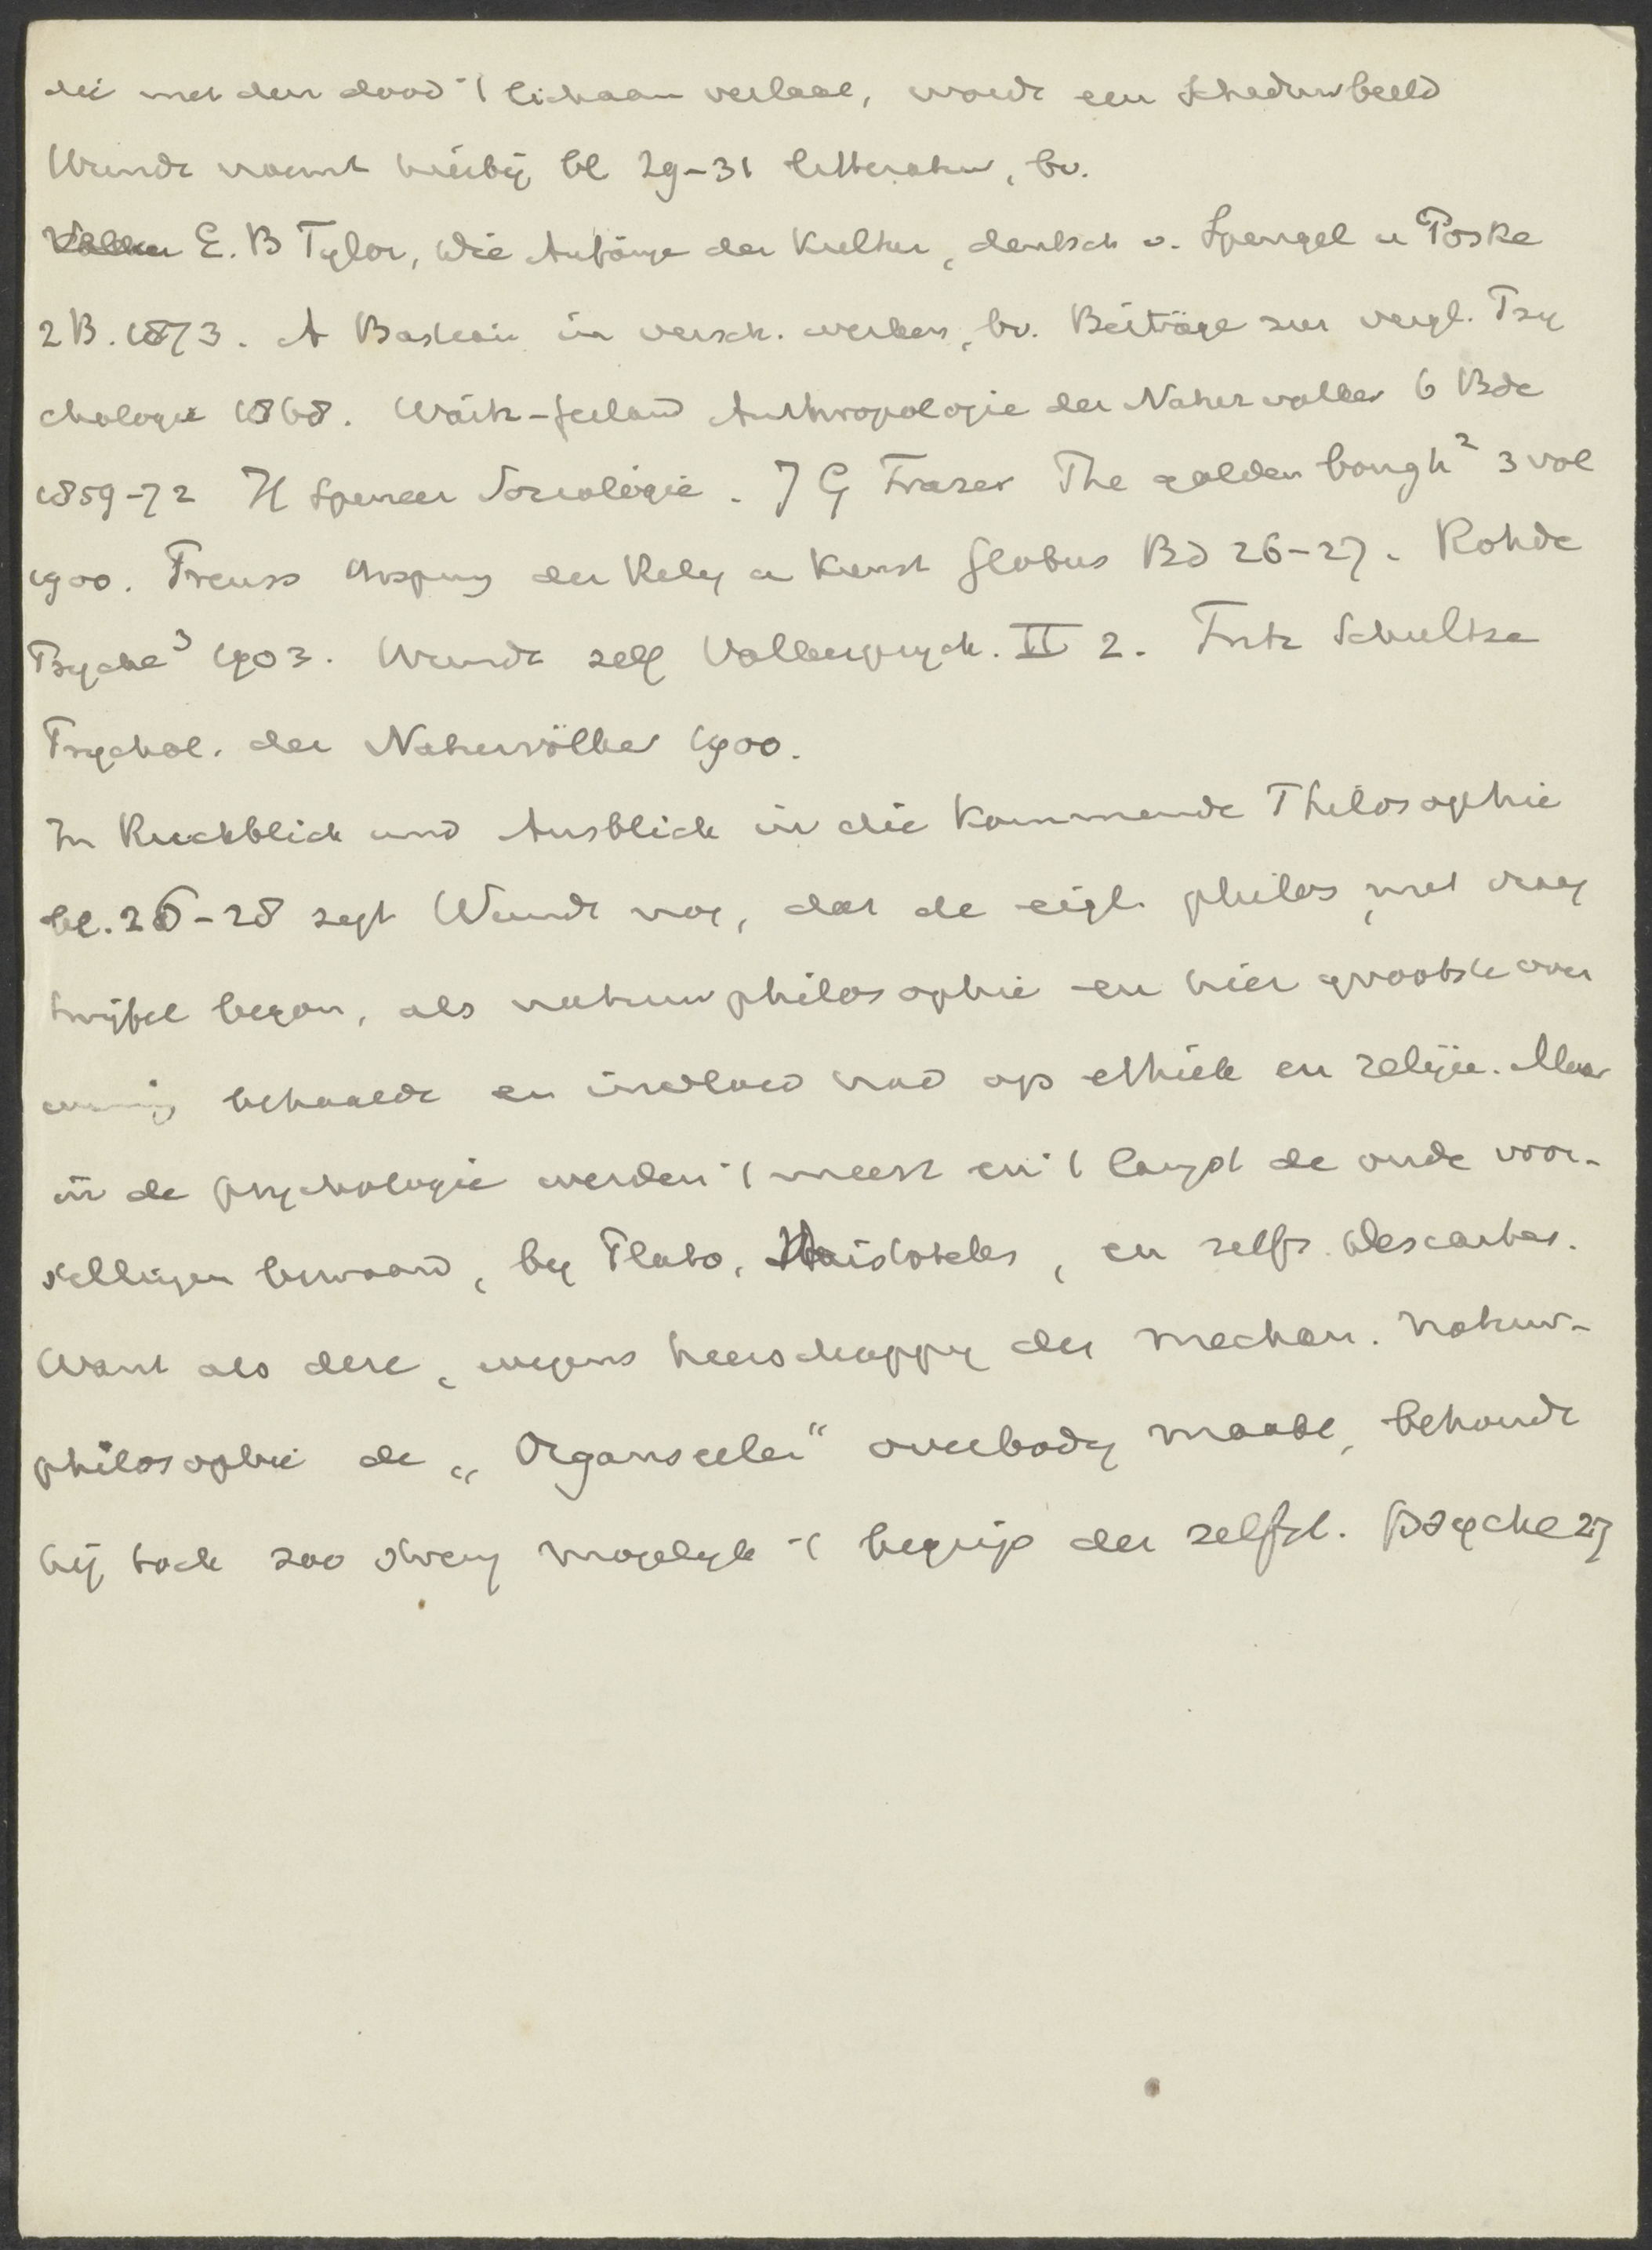 die met den dood 't lichaam verlaat, wordt een schaduwbeeld
Wundt noemt hierbij bl 29-31 litteratuur, bv.
E. B Tylor, Die Anfänge der Kultur, deutsch v. Spengel u Poske
2 B. 1873. A Bastian in versch. werken, bv. Beiträge zur vergl. Psy
chologie 1868. Waitz-Gerland Anthropologie der Naturvölker 6 Bde
1859-72 H Spencer Sociologie. J G Frazer The golden bough² 3 vol
1900. Preuss Ursprung der Relig u Kunst Globus Bd 26-27. Rohde
Psyche³ 1903. Wundt zelf Völkerpsych. II 2. Fritz Schultze
Psychol. der Naturvölker 1900.
In Ruckblick und Ausblick in die Kommende Philosophie
bl. 26-28 zegt Wundt nog, dat de eigl. philos, met
twijfel begon, als natuurphilosophie en hier grootste over
winning behaalde en invloed had op ethiek en religie. Maar
in de psychologie werden 't meest en 't langst de oude voor-
stellingen bewaard, by Plato, Aristoteles, en zelfs Descartes.
Want als deze, wegens heerschappy der mechan. natuur-
philosophie de „Organseelen" overbodig maakt, behoudt
hij toch zoo streng mogelyk 't begrip der zelfst. psyche 27